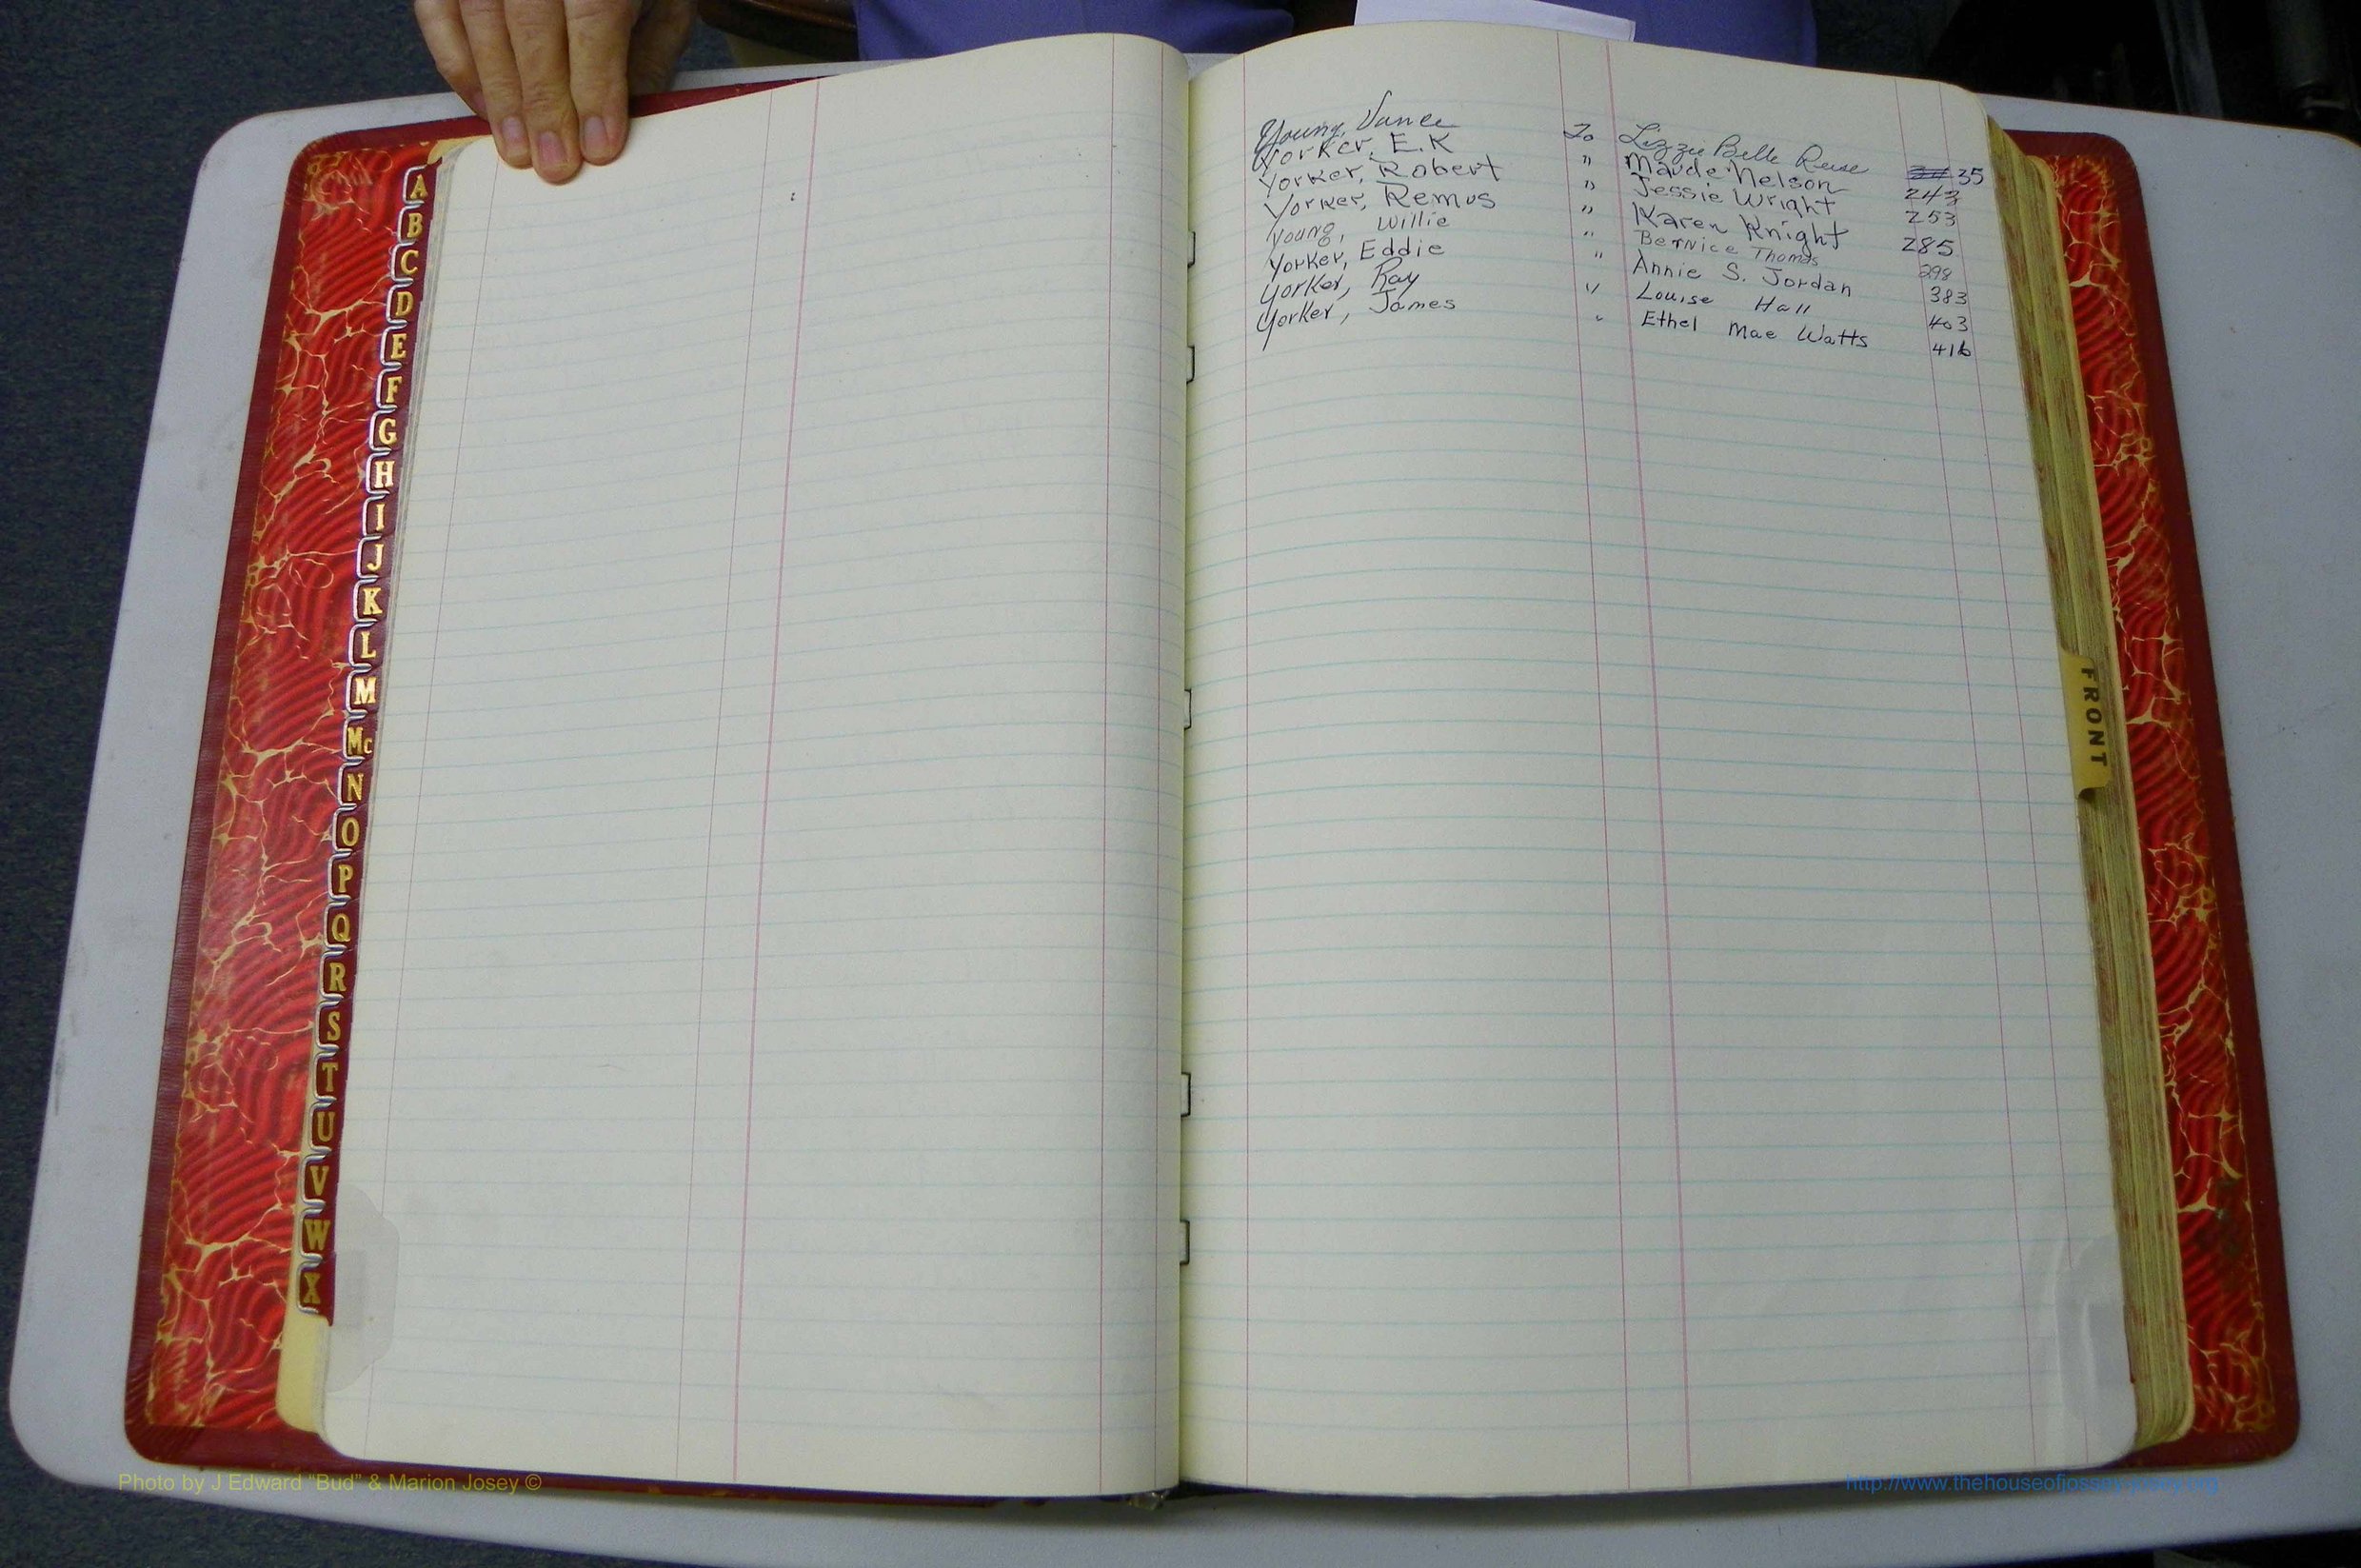 A
B
C
D
E
F
G
H
I
J
K
L
M
Mc
N
O
P
Q
R
S
T
U
V
W
X
Young, Vance To Lizzie Belle 35
Yorker, E.K " Maude Nelson 243
Yorker, Robert " Jessie Wright 253
Yorker, Remus " Karen Knight 285
Young, Willie " Bernice Thomas 298
Yorker, Eddie " Annie S. Jordan 383
Yorker, Ray " Louise Hall 403
Yorker, James " Ethel Mae Watts 416
FRONT
Photo by J Edward "Bud" & Marion Josey ©
http://www.thehouseofjossey-josey.org